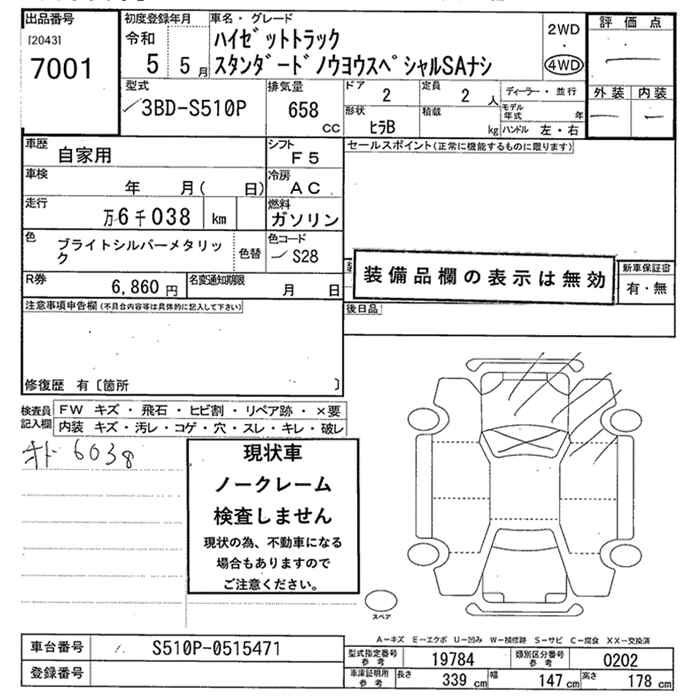 出品番号
[2043]
7001
初度登録年月
令和
5 5月
車名・グレード
ハイゼットトラック
スタンダードノウヨウスペシャルSAナシ
2WD
・
4WD
評価点
外装 内装
型式
3BD-S510P
排気量
658
cc
ドア
2
定員
2 人
形状
ヒラB
積載
kg
ディーラー・並行
モデル年式 年
ハンドル 左・右
車歴
自家用
シフト
F5
車検
年 月( 日)
冷房
AC
走行
万6千038 km
燃料
ガソリン
色
ブライトシルバーメタリック
色替
色コード
S28
R券
6,860円
名変通知期限
月 日
セールスポイント(正常に機能するものに限ります)
装備品欄の表示は無効
新車保証書
有・無
後日品
注意事項申告欄(不具合内容等は具体的に記入して下さい)
修復歴 有〔箇所 〕
検査員記入欄
FW キズ・飛石・ヒビ割・リペア跡・×要
内装 キズ・汚レ・コゲ・穴・スレ・キレ・破レ
6038
現状車
ノークレーム
検査しません
現状の為、不動車になる
場合もありますので
ご注意ください。
スペア
A−キズ E−エクボ U−凹み W−補修跡 S−サビ C−腐食 XX−交換済
車台番号
S510P-0515471
登録番号
型式指定番号
参考
19784
類別区分番号
参考
0202
車庫証明用
参考
長さ 339 cm
幅 147 cm
高さ 178 cm